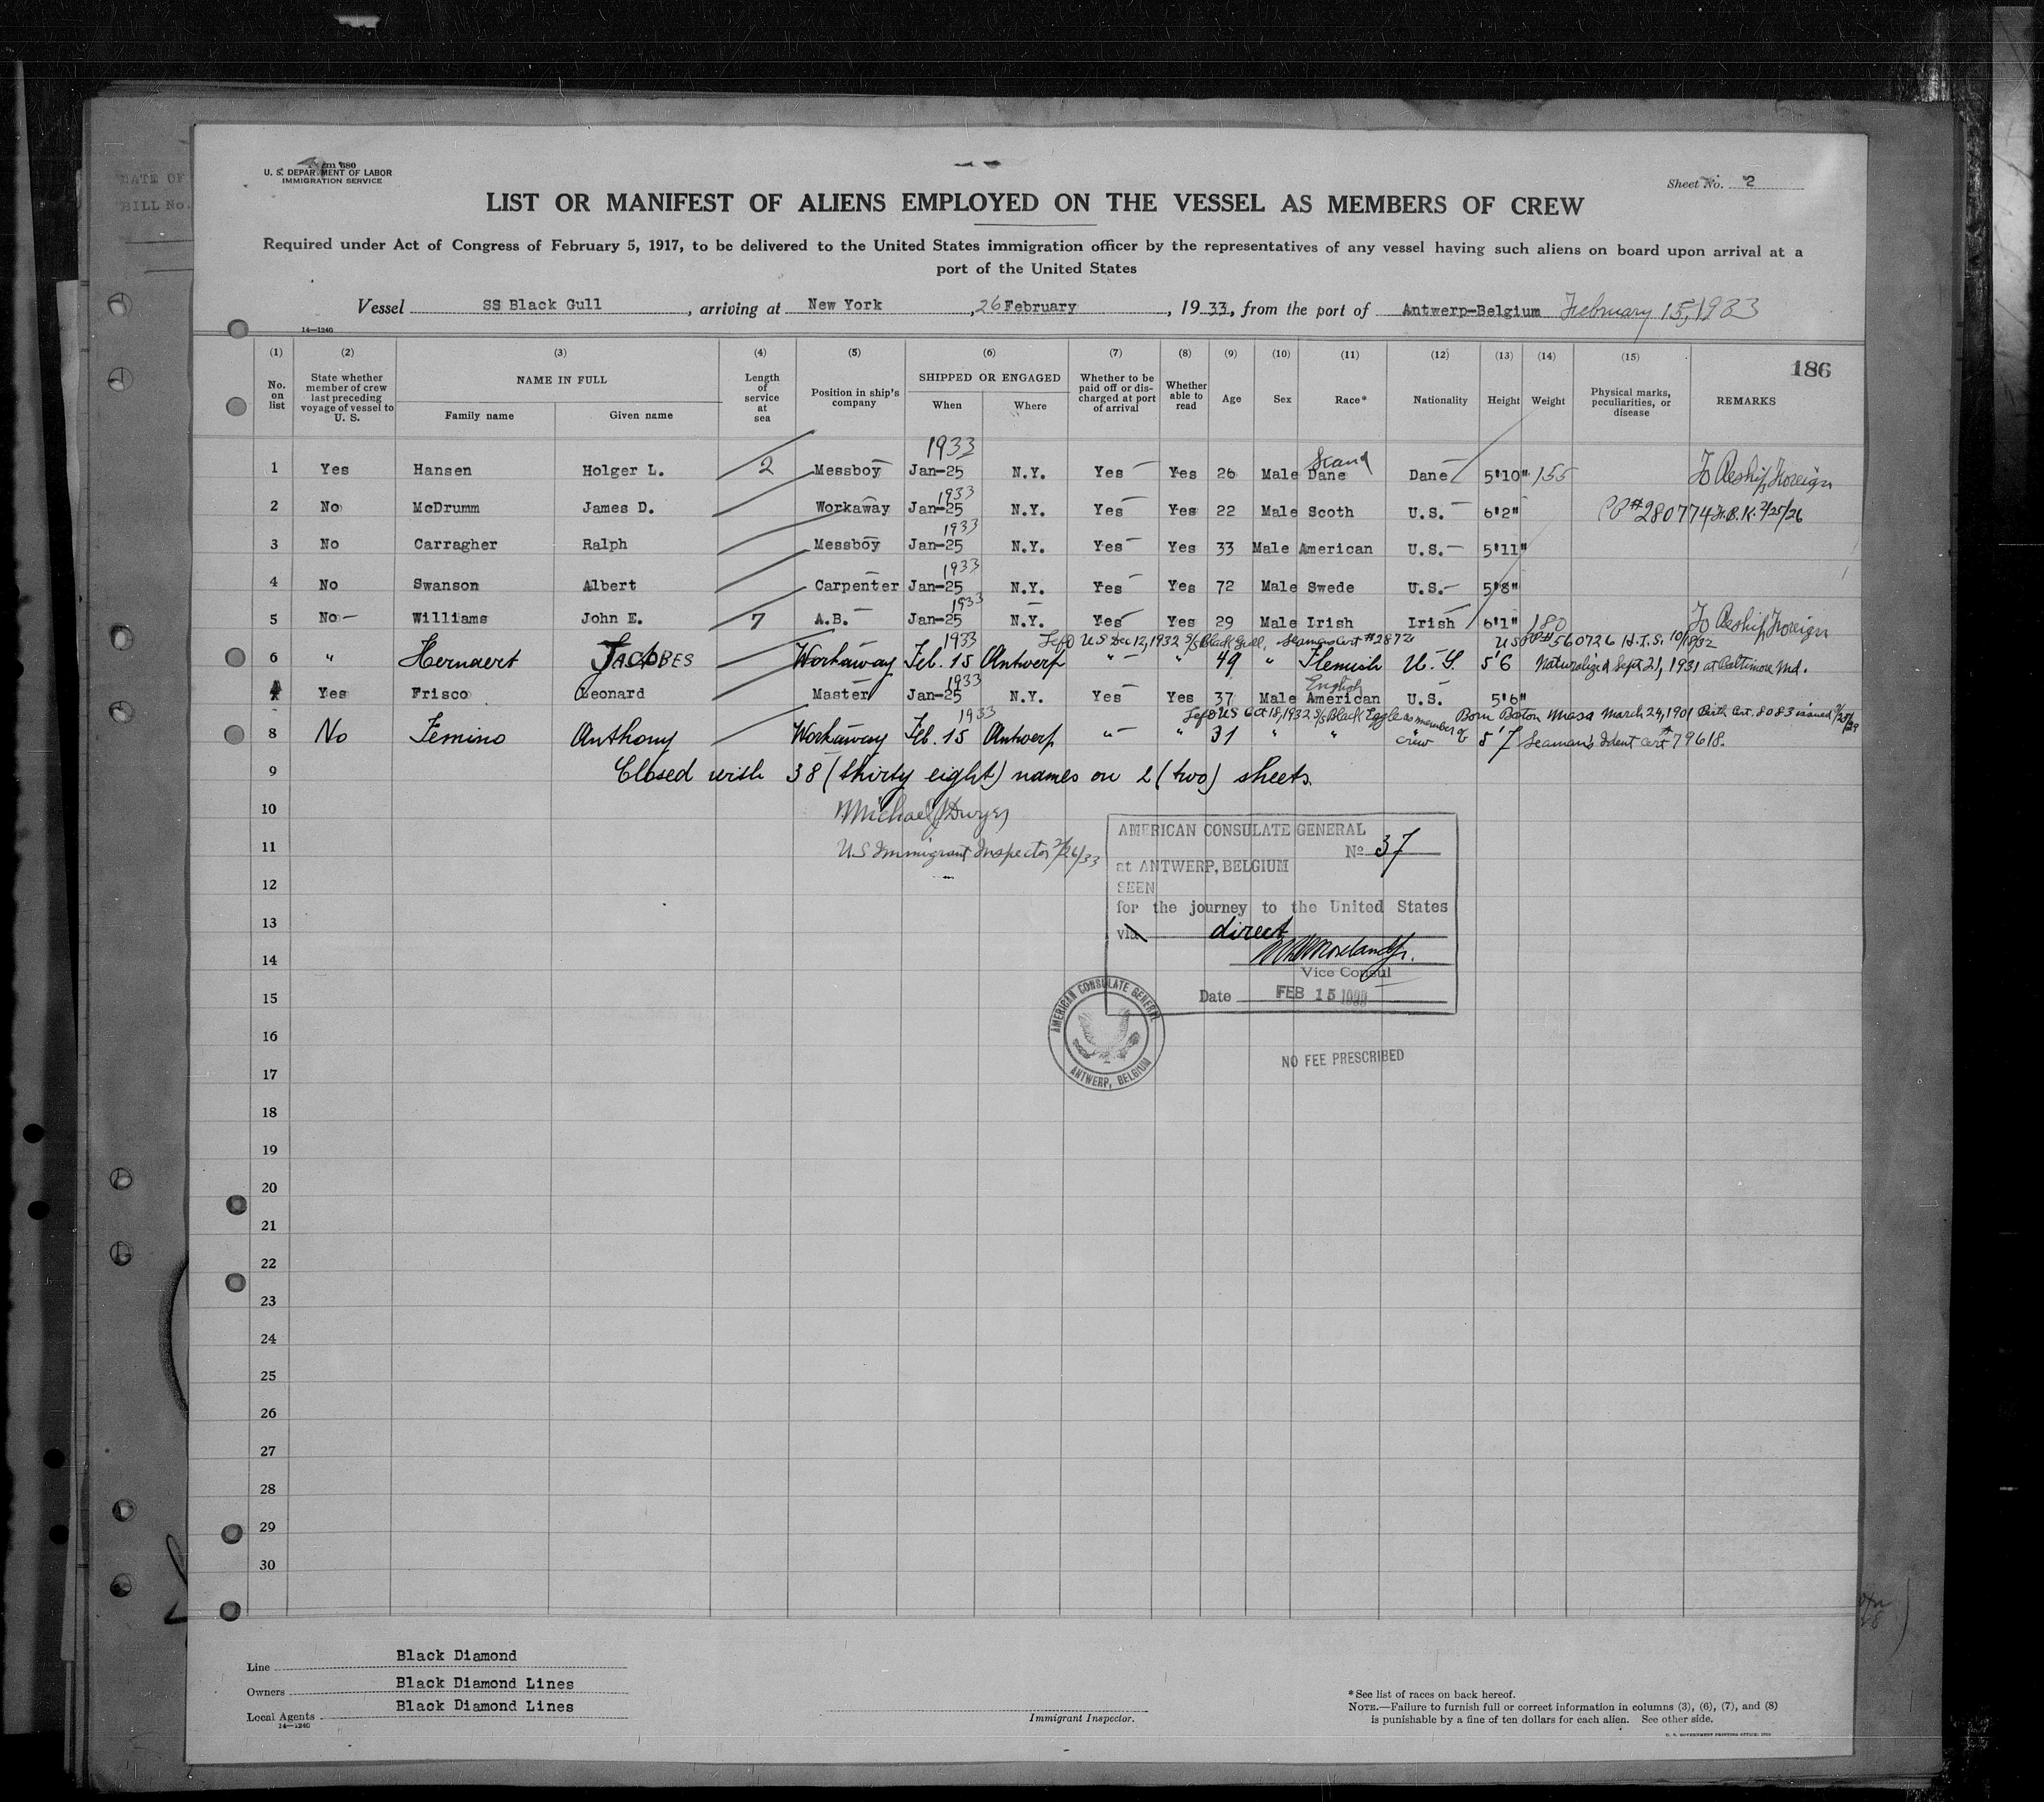 U. S. DEPARTMENT OF LABOR
IMMIGRATION SERVICE
Sheet No. 2
LIST OR MANIFEST OF ALIENS EMPLOYED ON THE VESSEL AS MEMBERS OF CREW
Required under Act of Congress of February 5, 1917, to be delivered to the United States immigration officer by the representatives of any vessel having such aliens on board upon arrival at a
port of the United States
Vessel SS Black Gull, arriving at New York, 26 February, 1933, from the port of Antwerp-Belgium February 15, 1933
14—1240
(1) (2) (3) (4) (5) (6) (7) (8) (9) (10) (11) (12) (13) (14) (15)
186
No. on list
State whether member of crew last preceding voyage of vessel to U. S.
NAME IN FULL
Family name
Given name
Length of service at sea
Position in ship's company
SHIPPED OR ENGAGED
When
Where
Whether to be paid off or discharged at port of arrival
Whether able to read
Age
Sex
Race*
Nationality
Height
Weight
Physical marks, peculiarities, or disease
REMARKS
1 Yes Hansen Holger L. 2 Messboy Jan-25 1933 N.Y. Yes Yes 26 Male Dane Scand Dane 5'10" 155 To Reship Foreign
2 No McDrumm James D. Workaway Jan-25 1933 N.Y. Yes Yes 22 Male Scoth U.S. 6'2" #280774
3 No Carragher Ralph Messboy Jan-25 1933 N.Y. Yes Yes 33 Male American U.S. 5'11"
4 No Swanson Albert Carpenter Jan-25 1933 N.Y. Yes Yes 72 Male Swede U.S. 5'8"
5 No Williams John E. 7 A.B. Jan-25 1933 N.Y. Yes Yes 29 Male Irish Irish 6'1" 180 To Reship Foreign
Left U S Dec 12, 1932 S/S Black Gull, Seamans Cert #2872 #560726 H.T.S. 10/18/32
6 " Hernaert JACOBES Workaway Feb. 15 1933 Antwerp " " 49 " Flemish U.S. 5'6 Naturalized Sept 21, 1931 at Baltimore Md.
Yes Frisco Leonard Master Jan-25 1933 N.Y. Yes Yes 37 Male American English U.S. 5'6"
Left US Oct 18, 1932 S/S Black Eagle as member of crew Born Boston Mass March 24, 1901 Birth Cert. 8083 issued
8 No Femino Anthony Workaway Feb. 15 1933 Antwerp " " 31 " " " 5'7 Seaman's Ident Cert 79618.
9 Closed with 38 (thirty eight) names on 2 (two) sheets.
10 Michael J Dwyer
11 U S Immigrant Inspector 2/26/33
12
13
14
15
16
17
18
19
20
21
22
23
24
25
26
27
28
29
30
AMERICAN CONSULATE GENERAL
No 37
at ANTWERP, BELGIUM
SEEN
for the journey to the United States
via direct
Vice Consul
Date FEB 15 1933
AMERICAN CONSULATE GENERAL
ANTWERP, BELGIUM
NO FEE PRESCRIBED
Line Black Diamond
Owners Black Diamond Lines
Local Agents Black Diamond Lines
14—1240
Immigrant Inspector.
*See list of races on back hereof.
NOTE.—Failure to furnish full or correct information in columns (3), (6), (7), and (8)
is punishable by a fine of ten dollars for each alien. See other side.
DATE OF
BILL No.